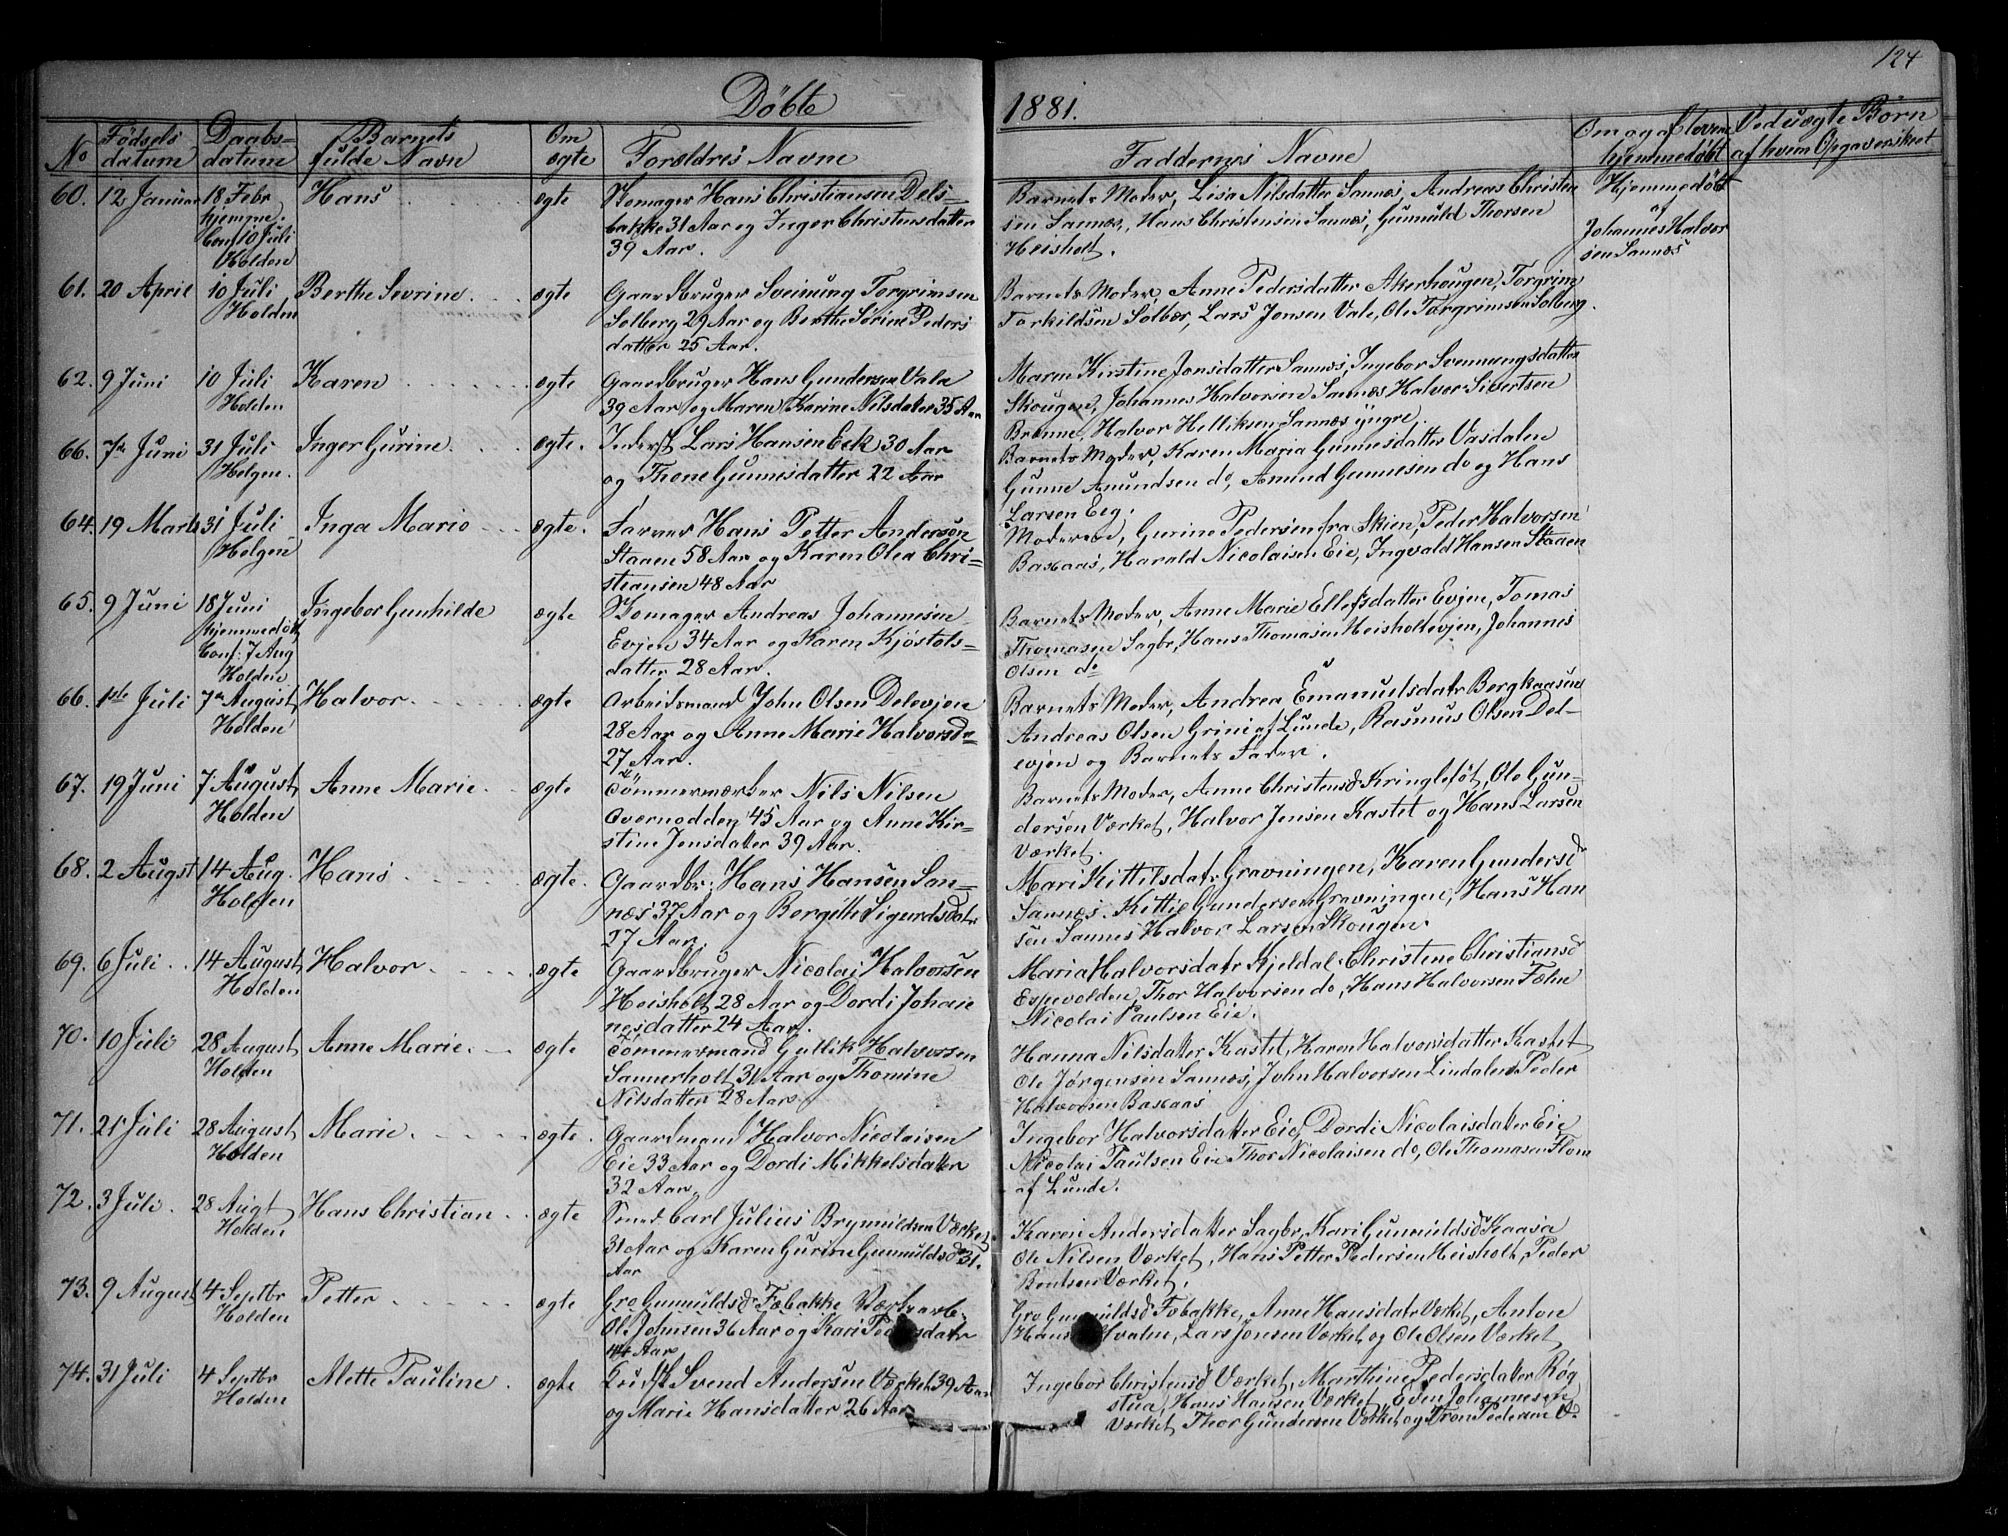 124
Døbte 1881.
No Fødsels datum Daabs- datum Barnets fulde Navn Om ægte Forældres Navne Faddernes Navne Om og af hvem hjemmedøbt Ved uægte Børn af hvem Opgaven sket
60. 12 Januar 18 Febr hjemme. Conf 10 Juli Holden Hans ægte Skomager Hans Christiansen Dels-
bakke 31 Aar og Inger Christensdatter
39 Aar.
Barnets Moder, Lisa Nilsdatter Sannes, Andreas Christen
sen Sannes, Hans Christensen Sannes, Gunnuld Thorsen
Heisholt.
Hjemmedøbt
af
Johannes Halvor
sen Sannes
61. 20 April 10 Juli Holden Berthe Sevrine ægte Gaardbruger Sveinung Torgrimsen
Solberg 29 Aar og Berthe Sørine Peders
datter 25 Aar.
Barnets Moder, Anne Pedersdatter Akerhougen, Torgrim
Torkildsen Solbær, Lars Jonsen Vale, Ole Torgrimsen Solberg.
62. 9 Juni 10 Juli Holden Karen ægte Gaardbruger Hans Gundersen Vala
39 Aar og Maren Karine Nilsdatter 35 Aar
Maren Kirstine Jonsdatter Sannes, Ingebor Svennungsdatter
Skougen, Johannes Halvorsen Sannes Halvor Sivertsen
Brenne, Halvor Helliksen Sannes yngre.
66. 7de Juni 31 Juli Helgen. Inger Gurine ægte. Inderst Lars Hansen Eek 30 Aar
og Thone Gunnesdatter 22 Aar
Barnets Moder, Karen Maria Gunnesdatter Vasdalen
Gunne Amundsen do, Amund Gunnesen do og Hans
Larsen Eeg.
64. 19 Marts 31 Juli Helgen Inga Marie ægte. Farver Hans Petter Andersøn
Staaen 58 Aar og Karen Olea Chri-
stiansen 48 Aar
Moderen, Gurine Pedersen fra Skien, Peder Halvorsen
Baskaas, Harald Nicolaisen Eie, Ingvald Hansen Staaen
65. 9 Juni 18 Juni hjemmedøbt Conf: 7 Aug Holden Ingebor Gunhilde ægte Skomager Andreas Johannesen
Evjen 34 Aar og Karen Kjøstols-
datter 28 Aar.
Barnets Moder, Anne Marie Ellefsdatter Evjen, Tomas
Thomasen Sagbr, Hans Thomasen Heisholtevjen, Johannes
Olsen do
66. 1ste Juli 7de August Holden Halvor ægte Arbeidsmand John Olsen Delevjen
28 Aar og Anne Marie Halvorsdr
27 Aar.
Barnets Moder, Andrea Emanuelsdatr Bergkaasene
Andreas Olsen Grini af Lunde, Rasmus Olsen Del-
evjen og Barnets Fader.
67. 19 Juni 7. August Holden Anne Marie ægte Tømmermærker Nils Nilsen
Overnodden 45 Aar og Anne Kir-
stine Jensdatter 39 Aar.
Barnets Moder, Anne Christensd Kringlefot, Ole Gun-
dersen Værket, Halvor Jensen Kastet og Hans Larsen
Værket.
68. 2 Augst 14 Aug. Holden Hans ægte. Gaardbr: Hans Hansen San-
nes 37 Aar og Bergitte Sigurdsdatr
27 Aar.
Mari Kittilsdatr Gravningen, Karen Gundersd
Sannes. Kittil Gundersen Gravningen, Hans Han
sen Sannes Halvor Larsen Skougen
69. 6 Juli 14 August Holden Halvor ægte Gaardbruger Nicolai Halvorsen
Heisholt 28 Aar og Dordi Johan
nesdatter 24 Aar.
Maria Halvorsdatr Kjeldal Christine Christiansd
Espevolden, Thor Halvorsen do, Hans Halvorsen Fæhn
Nicolai Paulsen Eie.
70. 10 Juli 28 August Holden Anne Marie ægte Tømmermand Gullik Halvorsen
Sannerholt 31 Aar og Thomine
Nilsdatter 28 Aar
Hanna Nilsdatter Kastet, Karen Halvorsdatter Kastet
Ole Jørgensen Sannes, John Halvorsen Lindalen Peder
Halvorsen Baskaas
71. 21 Juli 28 August Holden Marie ægte Gaardmand Halvor Nicolaisen
Eie 33 Aar og Dordi Mikkelsdatter
32 Aar.
Ingebor Halvorsdatter Eie, Dordi Nicolaisdatter Eie
Nicolai Paulsen Eie Thor Nicolaisen do, Ole Thomasen Flom
af Lunde.
72. 3 Juli. 28 Augt Holden Hans Christian ægte Smed Carl Julius Brynnildsen Værket
31 Aar og Karen Gurine Gunnuldsdr 31.
Aar
Karen Andersdatter Sagbr, Kari Gunnuldsd Kaasa
Ole Nilsen Værket, Hans Petter Pedersen Heisholt, Peder
Bentsen Værket.
73. 9 August 4 Septbr Holden Petter ægte Gro Gunnuldsdr Fæbakke Værksarb.
Ole Johnsen 36 Aar og Kari Pedersdatr
44 Aar
Gro Gunnuldsd Fæbakke, Anne Hansdatr Værket, Anton
Hans Hvalen, Lars Jonsen Værket og Ole Olsen Værket
74. 31 Juli 4 Septbr Holden Mette Pauline ægte Svend Andersen Værket 39 Aar
og Marie Hansdatter 26 Aar
Ingebor Christensd Værket, Marthine Pedersdatter Røg
stua, Hans Hansen Værket, Even Johannesen
Værket, Thor Gundersen Værket og Tron Pedersen V.